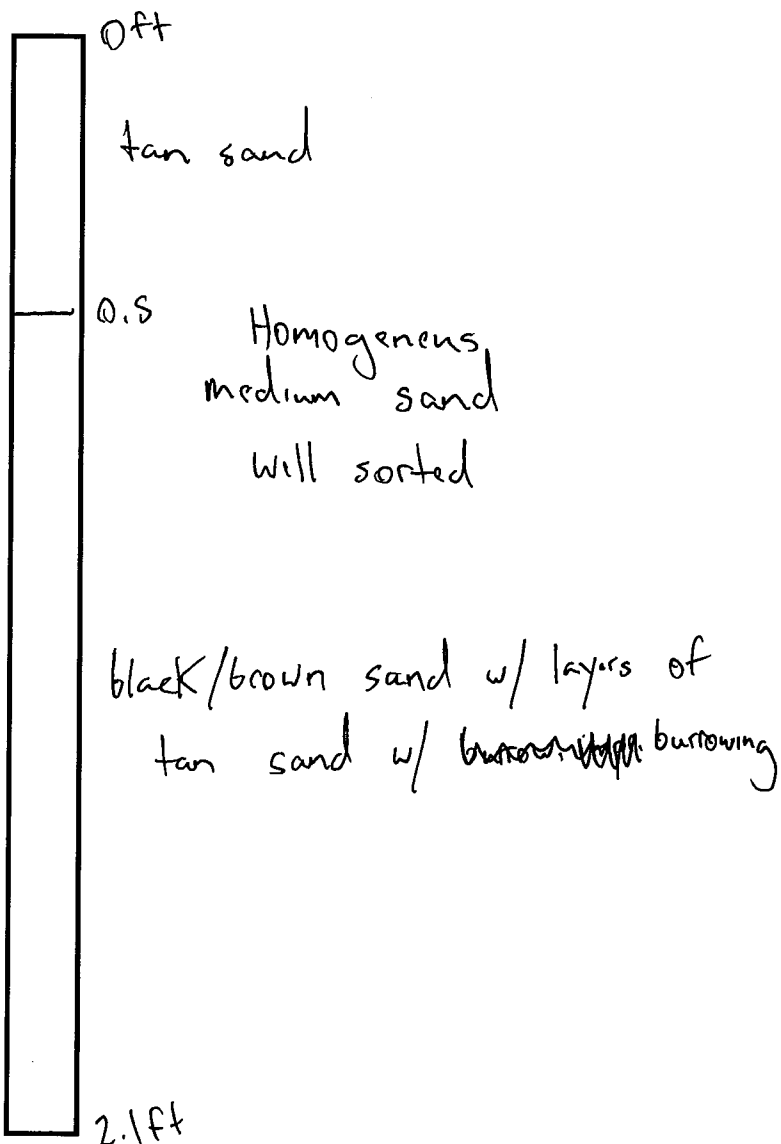 0ft
tan sand
0.5
Homogeneus
medium sand
Will sorted
black/brown sand w/ layers of
tan sand w/ burrowing
2.1ft